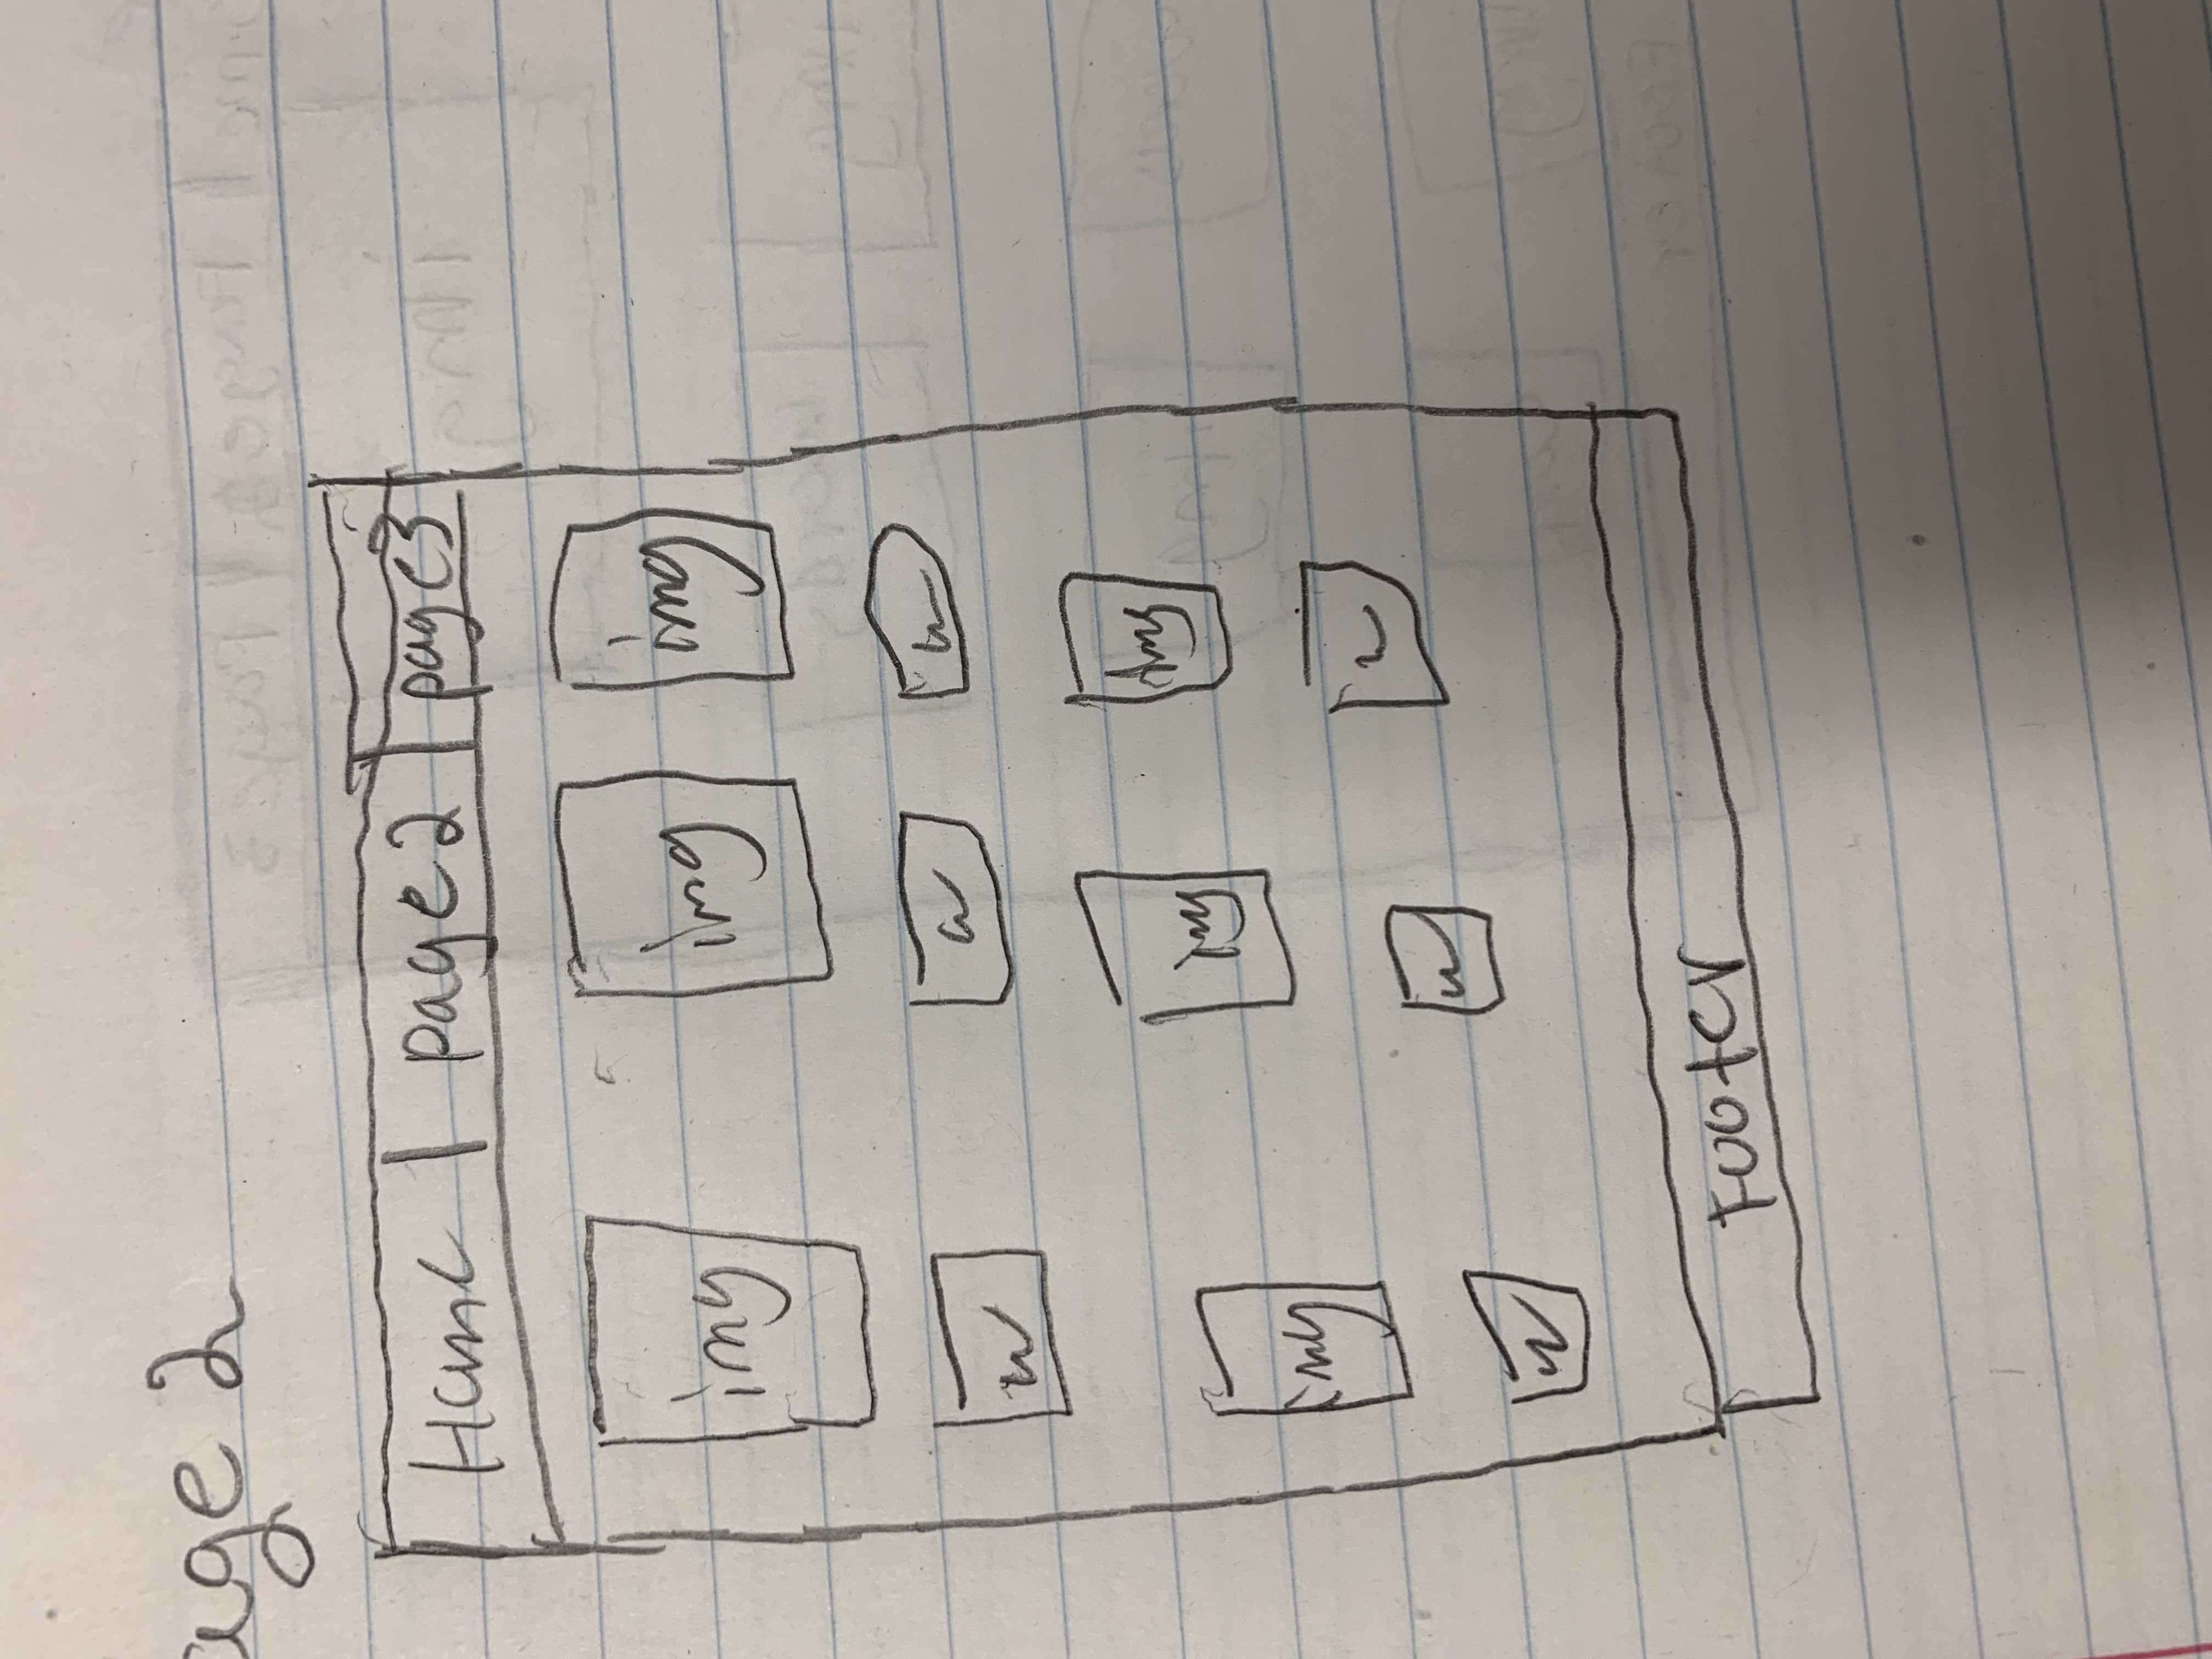 age 2
Home | page 2 | page 3
img img img
w w w
img img img
w w w
Footer